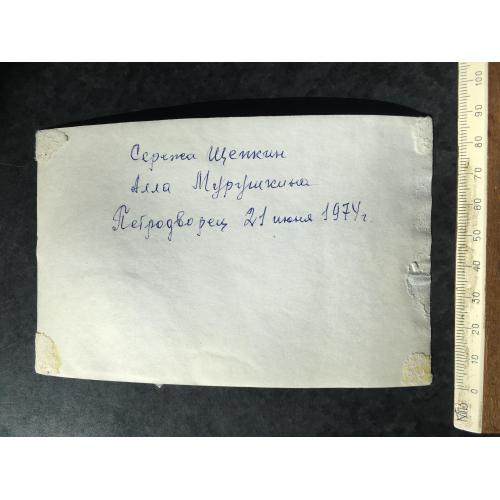 Сережа Щепкин
Алла Мурушкина
Петродворец 21 июня 1974г.
0 10 20 30 40 50 60 70 80 90 100